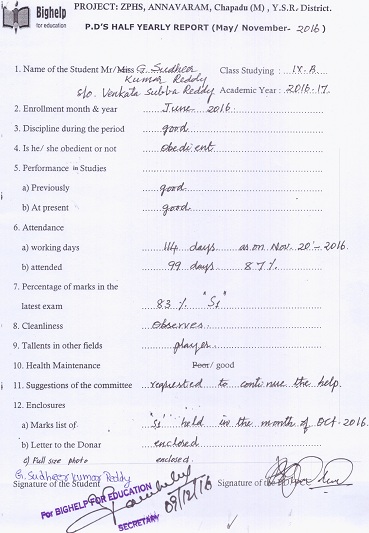 Bighelp
for education
PROJECT: ZPHS, ANNAVARAM, Chapadu (M) , Y.S.R. District.
P.D'S HALF YEARLY REPORT (May/ November- 2016)
1. Name of the Student Mr/Miss G. Sudheer Kumar Reddy Class Studying : IX.A
s/o. Venkata Subba Reddy Academic Year : 2016-17
2. Enrollment month & year June 2016
3. Discipline during the period good
4. Is he/ she obedient or not obedient
5. Performance in Studies
a) Previously good
b) At present good
6. Attendance
a) working days 114 days as on Nov. 20 - 2016
b) attended 99 days 87%
7. Percentage of marks in the
latest exam 83 % "S1"
8. Cleanliness observes
9. Tallents in other fields player
10. Health Maintenance Poor/ good
11. Suggestions of the committee requested to continue the help.
12. Enclosures
a) Marks list of "S1" held in the month of Oct-2016
b) Letter to the Donar enclosed
c) Full size photo enclosed.
G. Sudheer kumar Reddy
Signature of the Student Signature of the
For BIGHELP FOR EDUCATION
09/12/16
SECRETARY